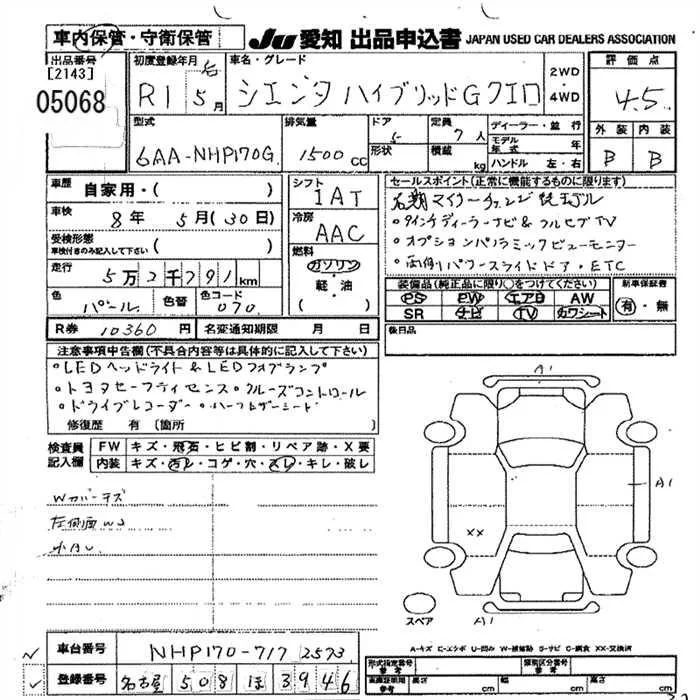 車内保管・守衛保管
JU 愛知 出品申込書 JAPAN USED CAR DEALERS ASSOCIATION
出品番号
[2143]
05068
初度登録年月
R1 5月
車名・グレード
シエンタ ハイブリッドG クエロ
2WD
・
4WD
評価点
4.5
外装 内装
B B
型式
6AA-NHP170G
排気量
1500 cc
ドア
5
形状
定員
7人
積載
kg
ディーラー・並行
モデル年式 年
ハンドル 左・右
車歴
自家用・( )
車検
8年 5月(30日)
受検形態
車検付きのみ記入して下さい
( )
走行
5万2千791km
色
パール
色替
色コード
070
R券 10360円 名変通知期限 月 日
シフト
IAT
冷房
AAC
燃料
ガソリン
・
軽・油
( )
セールスポイント(正常に機能するものに限ります)
・9インチディーラーナビ&フルセグTV
・オプションパノラミックビューモニター
・両側パワースライドドア・ETC
装備品(純正品に限り○をつけてください)
PS PW エアB AW
SR ナビ TV カワシート
新車保証書
有・無
後日品
注意事項申告欄(不具合内容等は具体的に記入して下さい)
・LEDヘッドライト&LEDフォグランプ
・トヨタセーフティセンス・クルーズコントロール
・ドライブレコーダー・ハーフレザーシート
修復歴 有(箇所 )
検査員
記入欄
FW キズ・飛石・ヒビ割・リペア跡・X要
内装 キズ・汚レ・コゲ・穴・スレ・キレ・破レ
Wカバーキズ
左側面WS
小AU
A1
A1
XX
スペア
A1
A-キズ E-エクボ U-凹み W-補修跡 S-サビ C-腐食 XX-交換済
車台番号 NHP170-7172573
登録番号 名古屋 508 ほ 3946
形式指定番号
参考
類別区分番号
参考
長さ cm
幅 cm
高さ cm